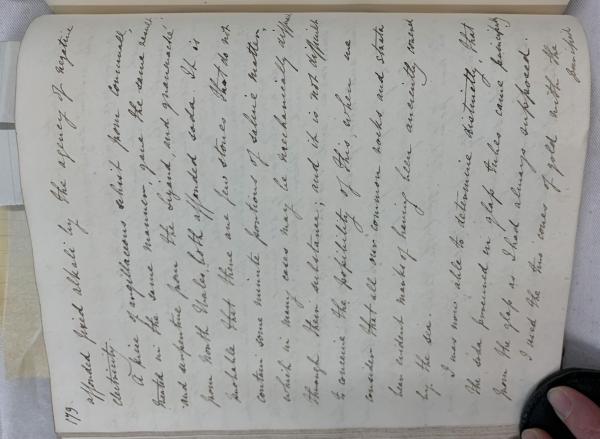 179.
afforded fixed alkali by the agency of negative
electricity.
A piece of argillaceous schist from Cornwall,
treated in the same manner, gave the same result
and serpentine from the Lizard, and grauwacke
from North Wales, both afforded soda. It is
probable that there are few stones that do not
contain some minute portions of saline matter,
which in many cases may be mechanically diffused
through their substance; and it is not difficult
to conceive the possibility of this, when we
consider that all our common rocks and strata
bear evident marks of having been anciently covered
by the sea.
I was now able to determine distinctly, that
the soda procured in glass tubes came principally
from the glass as I had always supposed.
I used the two cones of gold with the